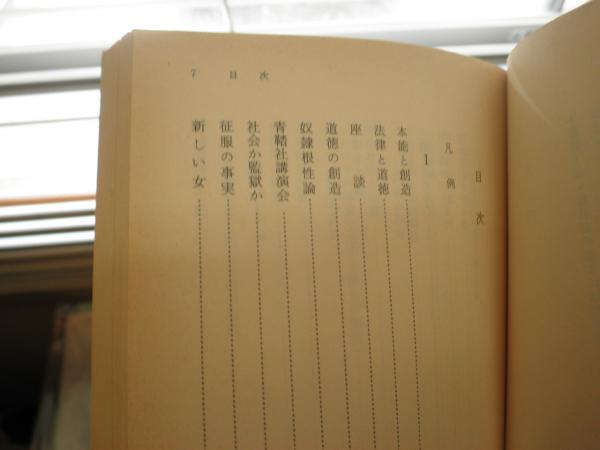 7 目次
目次
凡例
1
本能と創造
法律と道徳
座談
道徳の創造
奴隷根性論
青鞜社講演会
社会か監獄か
征服の事実
新しい女